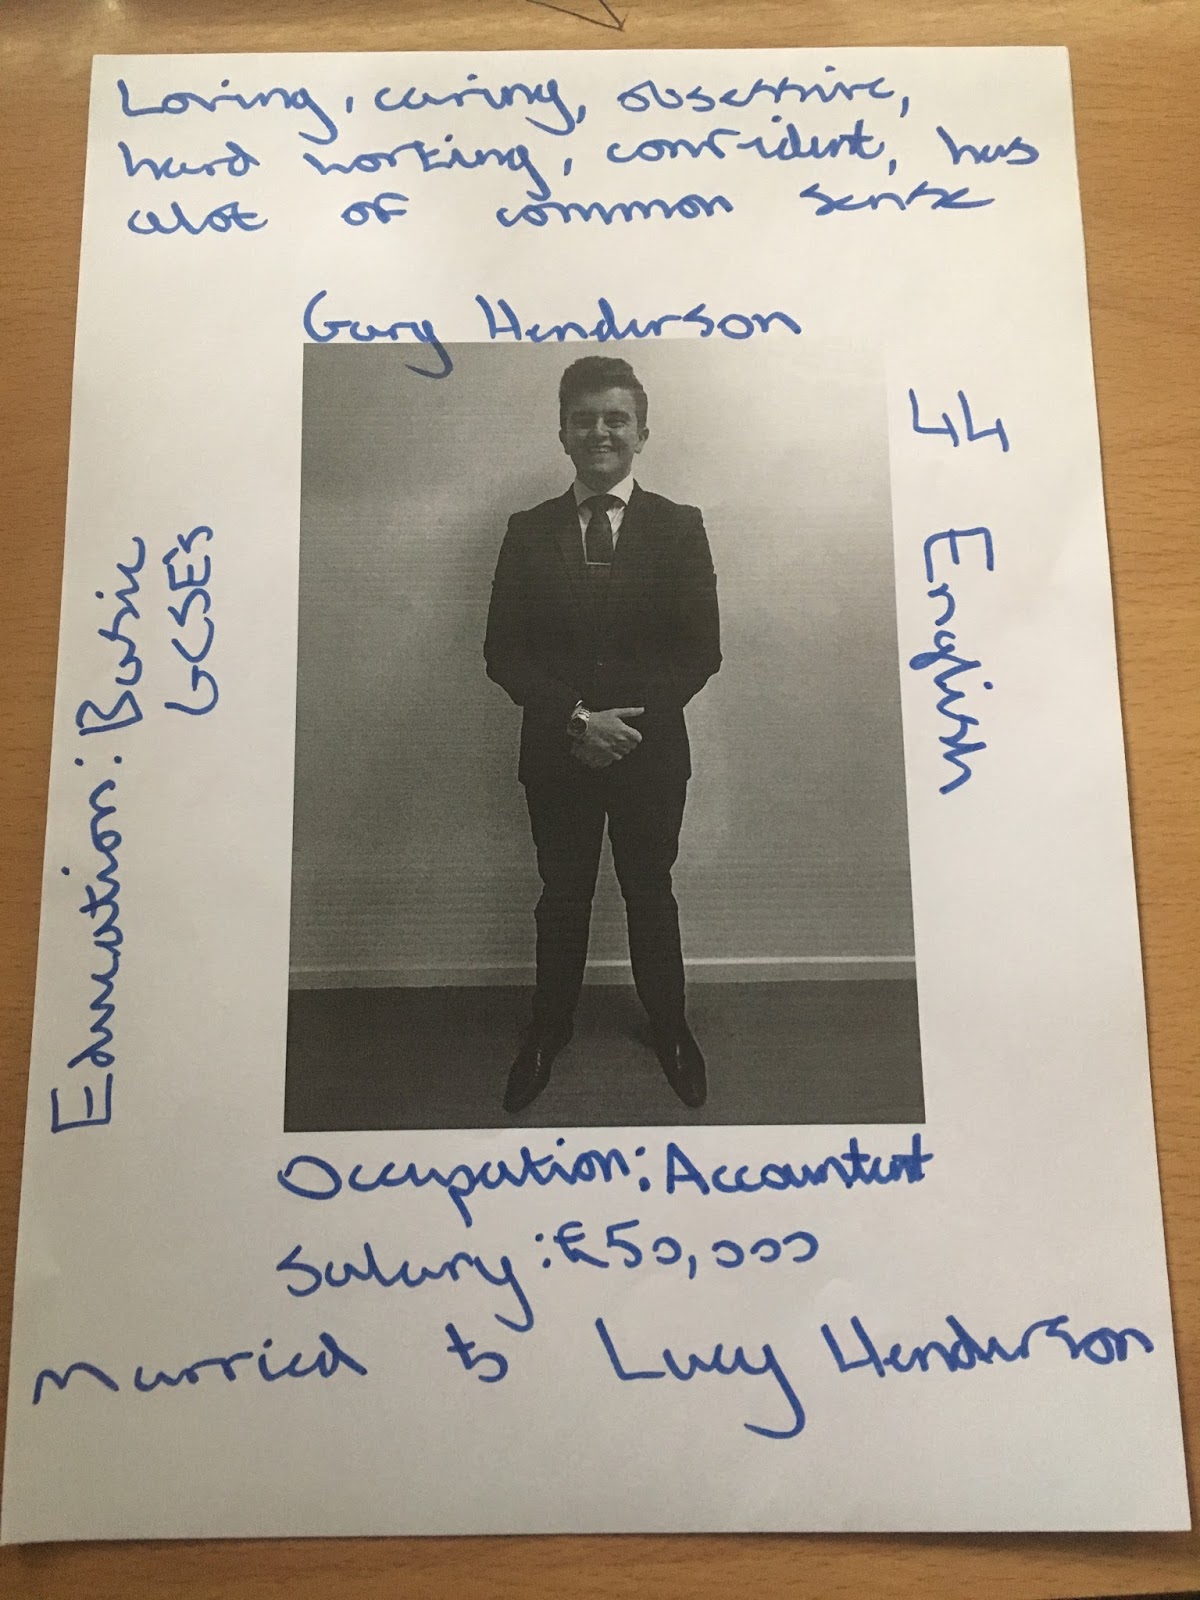 Loving, caring, obsessive,
hard working, confident, has
alot of common sense
Gary Henderson
44 English
Education: Basic
GCSE's
Occupation: Accountant
Salary: £50,000
Married to Lucy Henderson